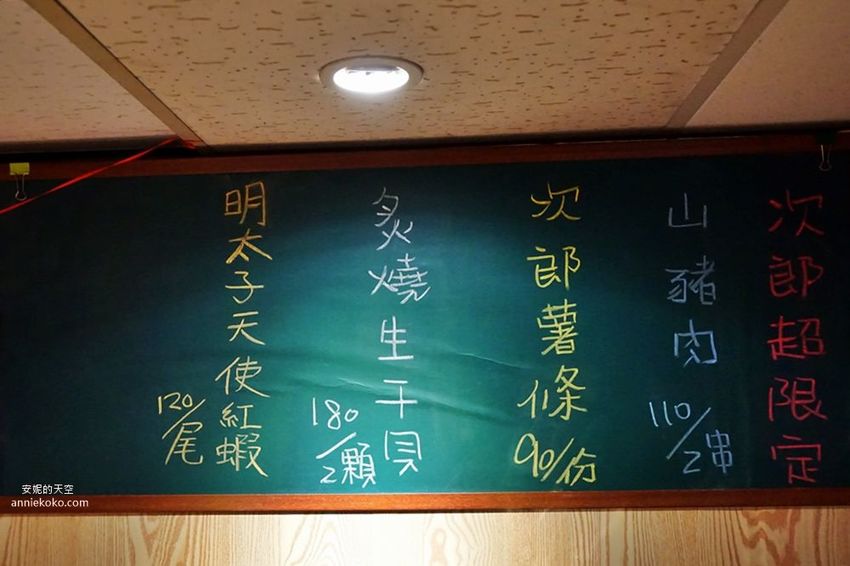 次郎超限定
山豬肉
110/2串
次郎薯條
90/份
炙燒生干貝
180/2顆
明太子天使紅蝦
120/尾
安妮的天空
anniekoko.com